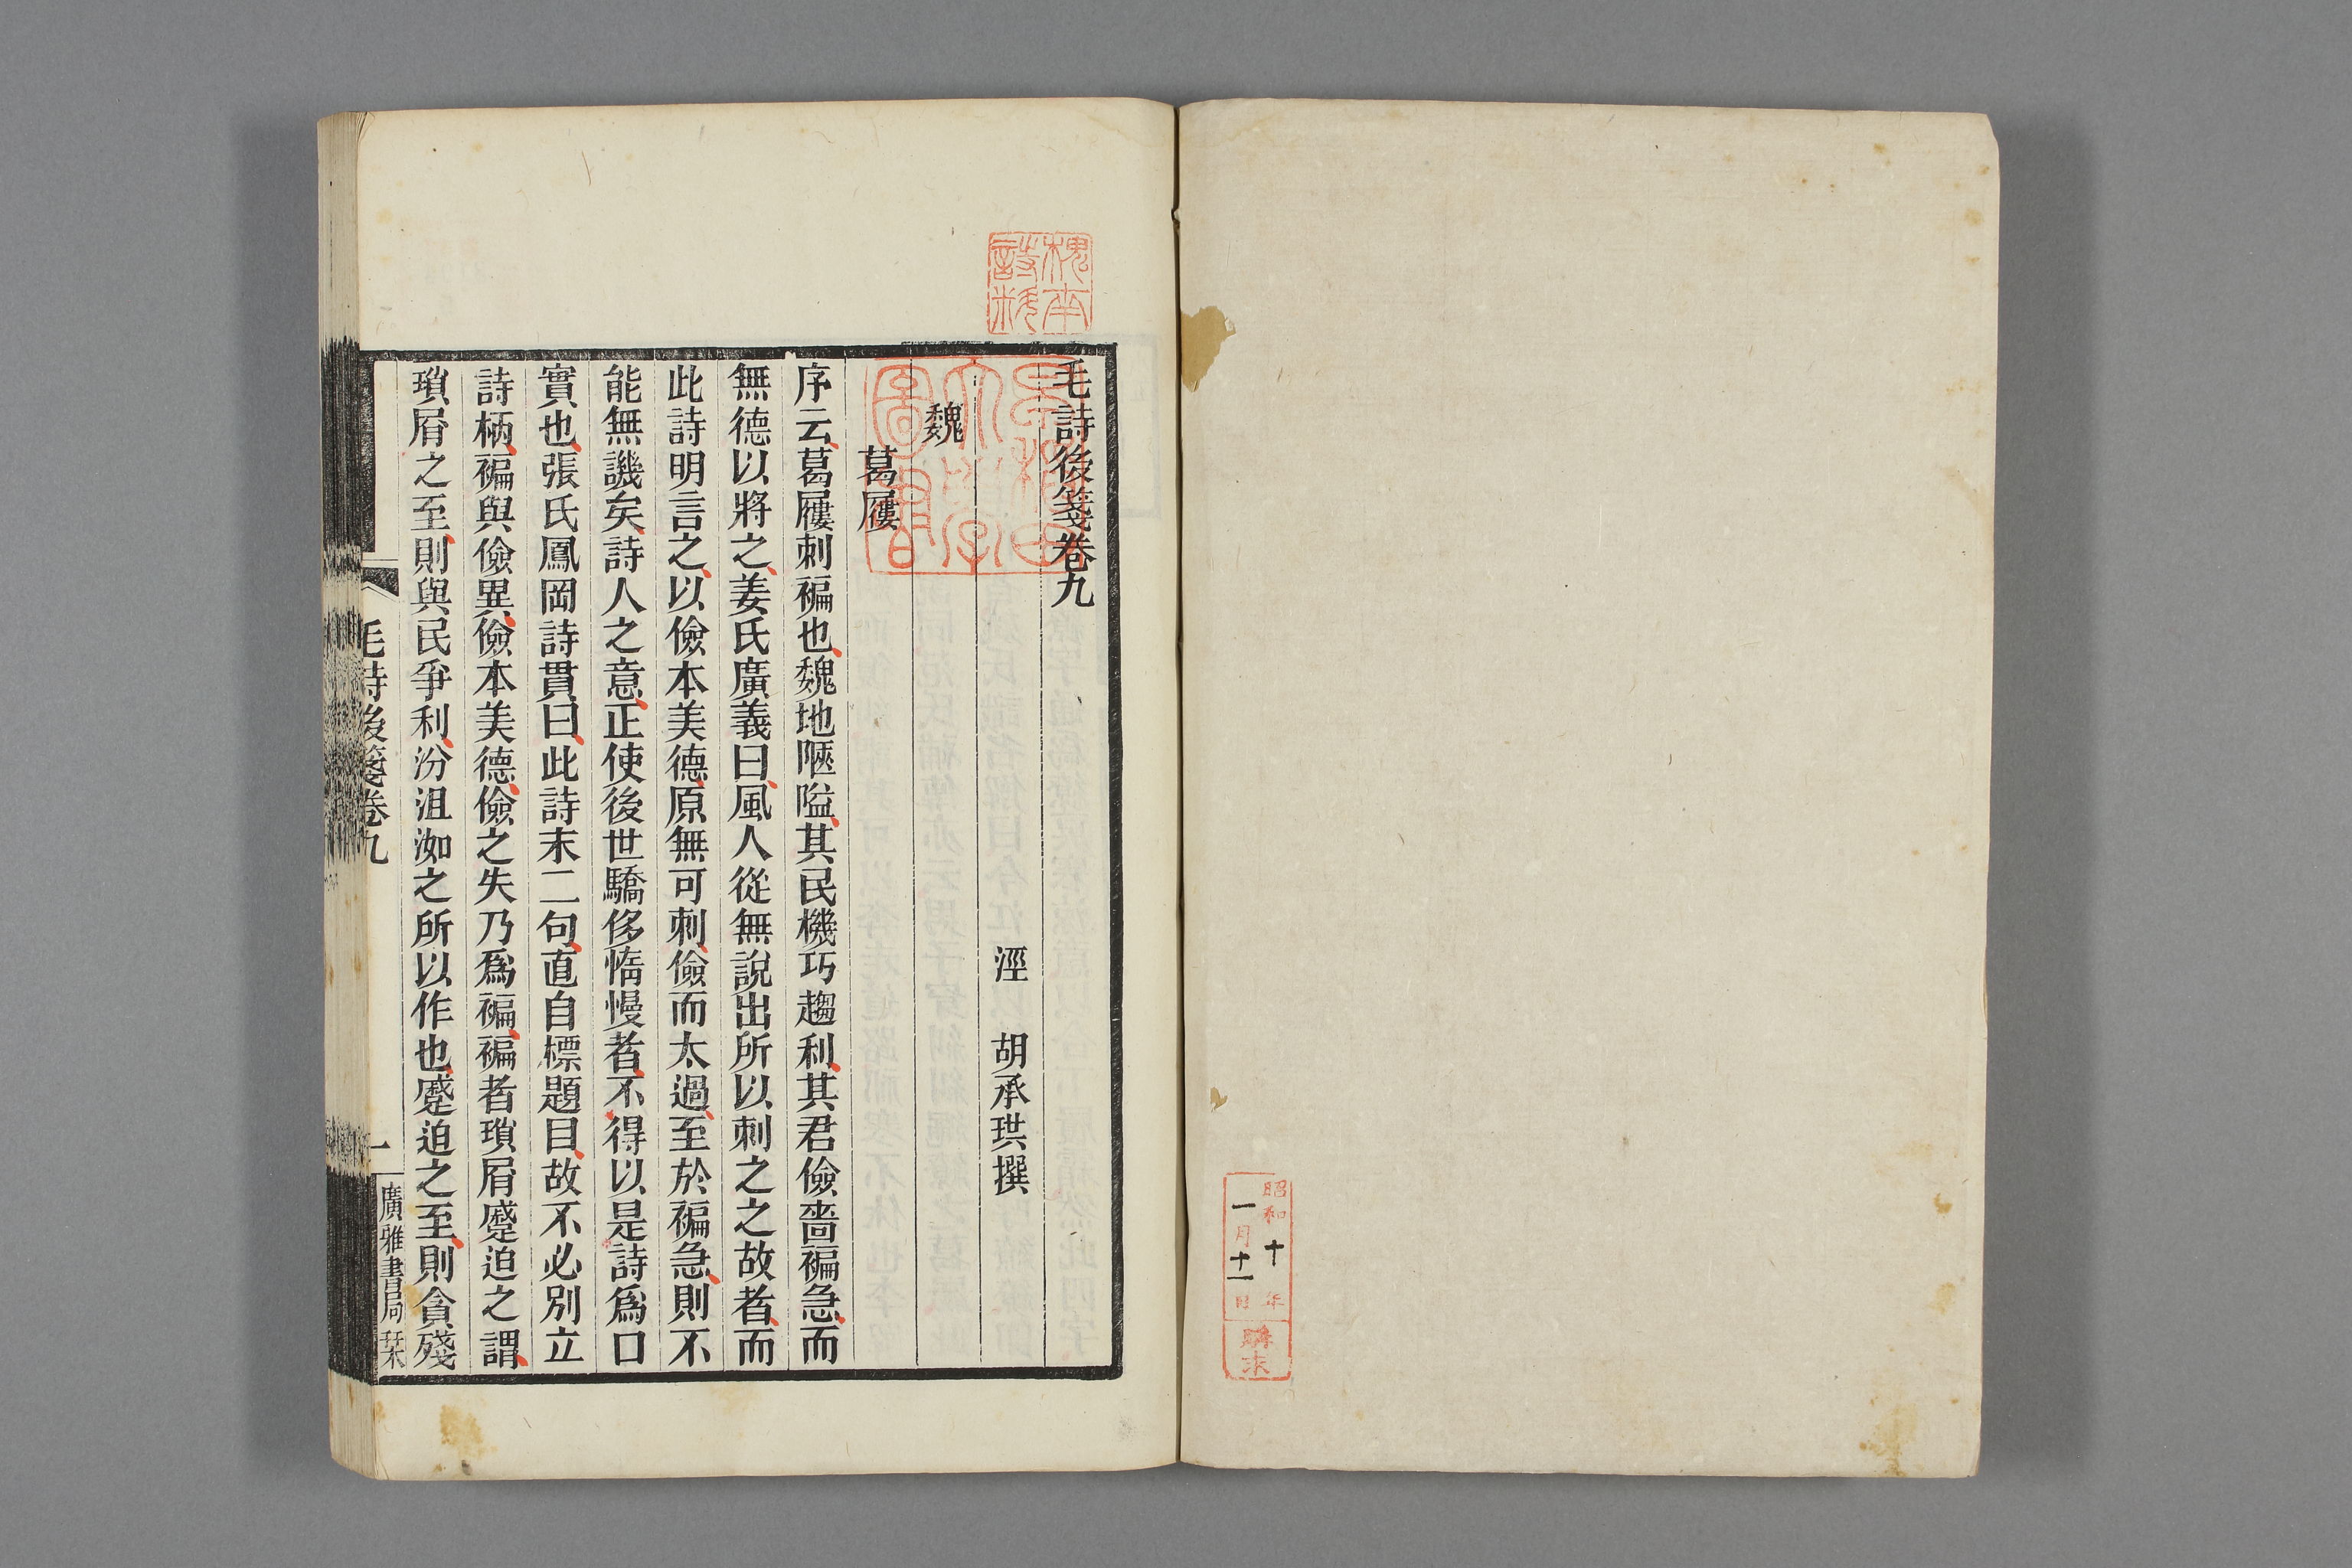 毛詩後箋卷九
涇　胡承珙撰
魏
葛屨
序云葛屨刺褊也魏地陿隘其民機巧趨利其君儉嗇褊急而
無德以將之姜氏廣義曰風人從無說出所以刺之之故者而
此詩明言之以儉本美德原無可刺儉而太過至於褊急則不
能無譏矣詩人之意正使後世驕侈惰慢者不得以是詩爲口
實也張氏鳳岡詩貫曰此詩末二句直自標題目故不必別立
詩柄褊與儉異儉本美德儉之失乃爲褊褊者瑣屑蹙迫之謂
瑣屑之至則與民爭利汾沮洳之所以作也蹙迫之至則貪殘
毛詩後箋卷九
一
廣雅書局栞
昭和十年
一月十一日
購求